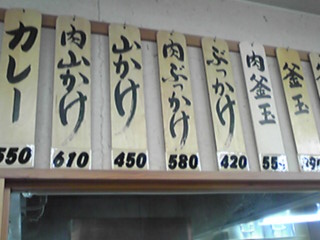 カレー
550
肉山かけ
610
山かけ
450
肉ぶっかけ
580
ぶっかけ
420
肉釜玉
55
釜玉